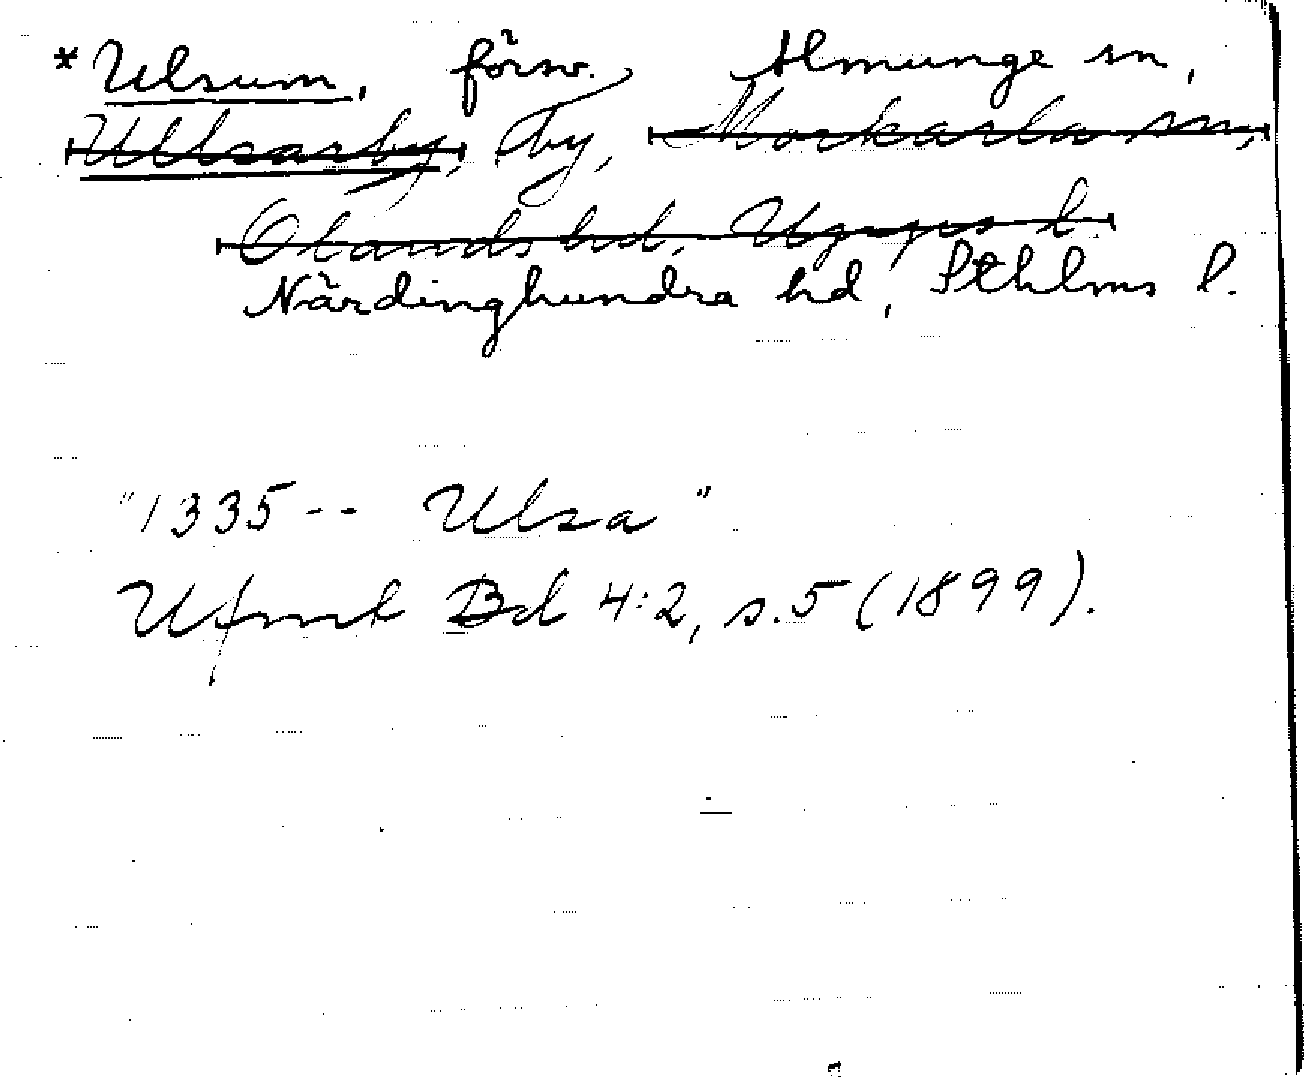 * Ulsum, försv. Almunge sn,
Ullsarby, by, Morkarla sn,
Olands hd, Uppsa l.
Närdinghundra hd, Sthlms l.
"1335-- Ulsa"
Ufmt Bd 4:2, s.5 (1899).